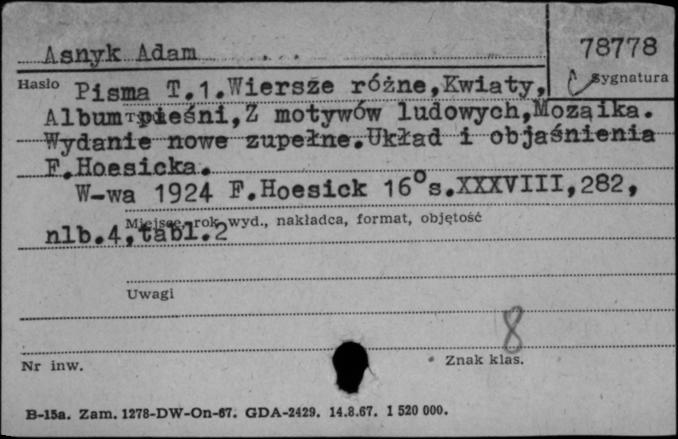 Asnyk Adam
78778
Hasło
Sygnatura
Pisma T.1.Wiersze różne,Kwiaty,
Album pieśni,Z motywów ludowych,Mozaika.
Wydanie nowe zupełne.Układ i objaśnienia
F.Hoesicka.
W-wa 1924 F.Hoesick 16°s.XXXVIII,282,
Miejsce, rok wyd., nakładca, format, objętość
nlb.4,tabl.2
Uwagi
8
Nr inw.
Znak klas.
B-15a. Zam. 1278-DW-On-67. GDA-2429. 14.8.67. 1 520 000.